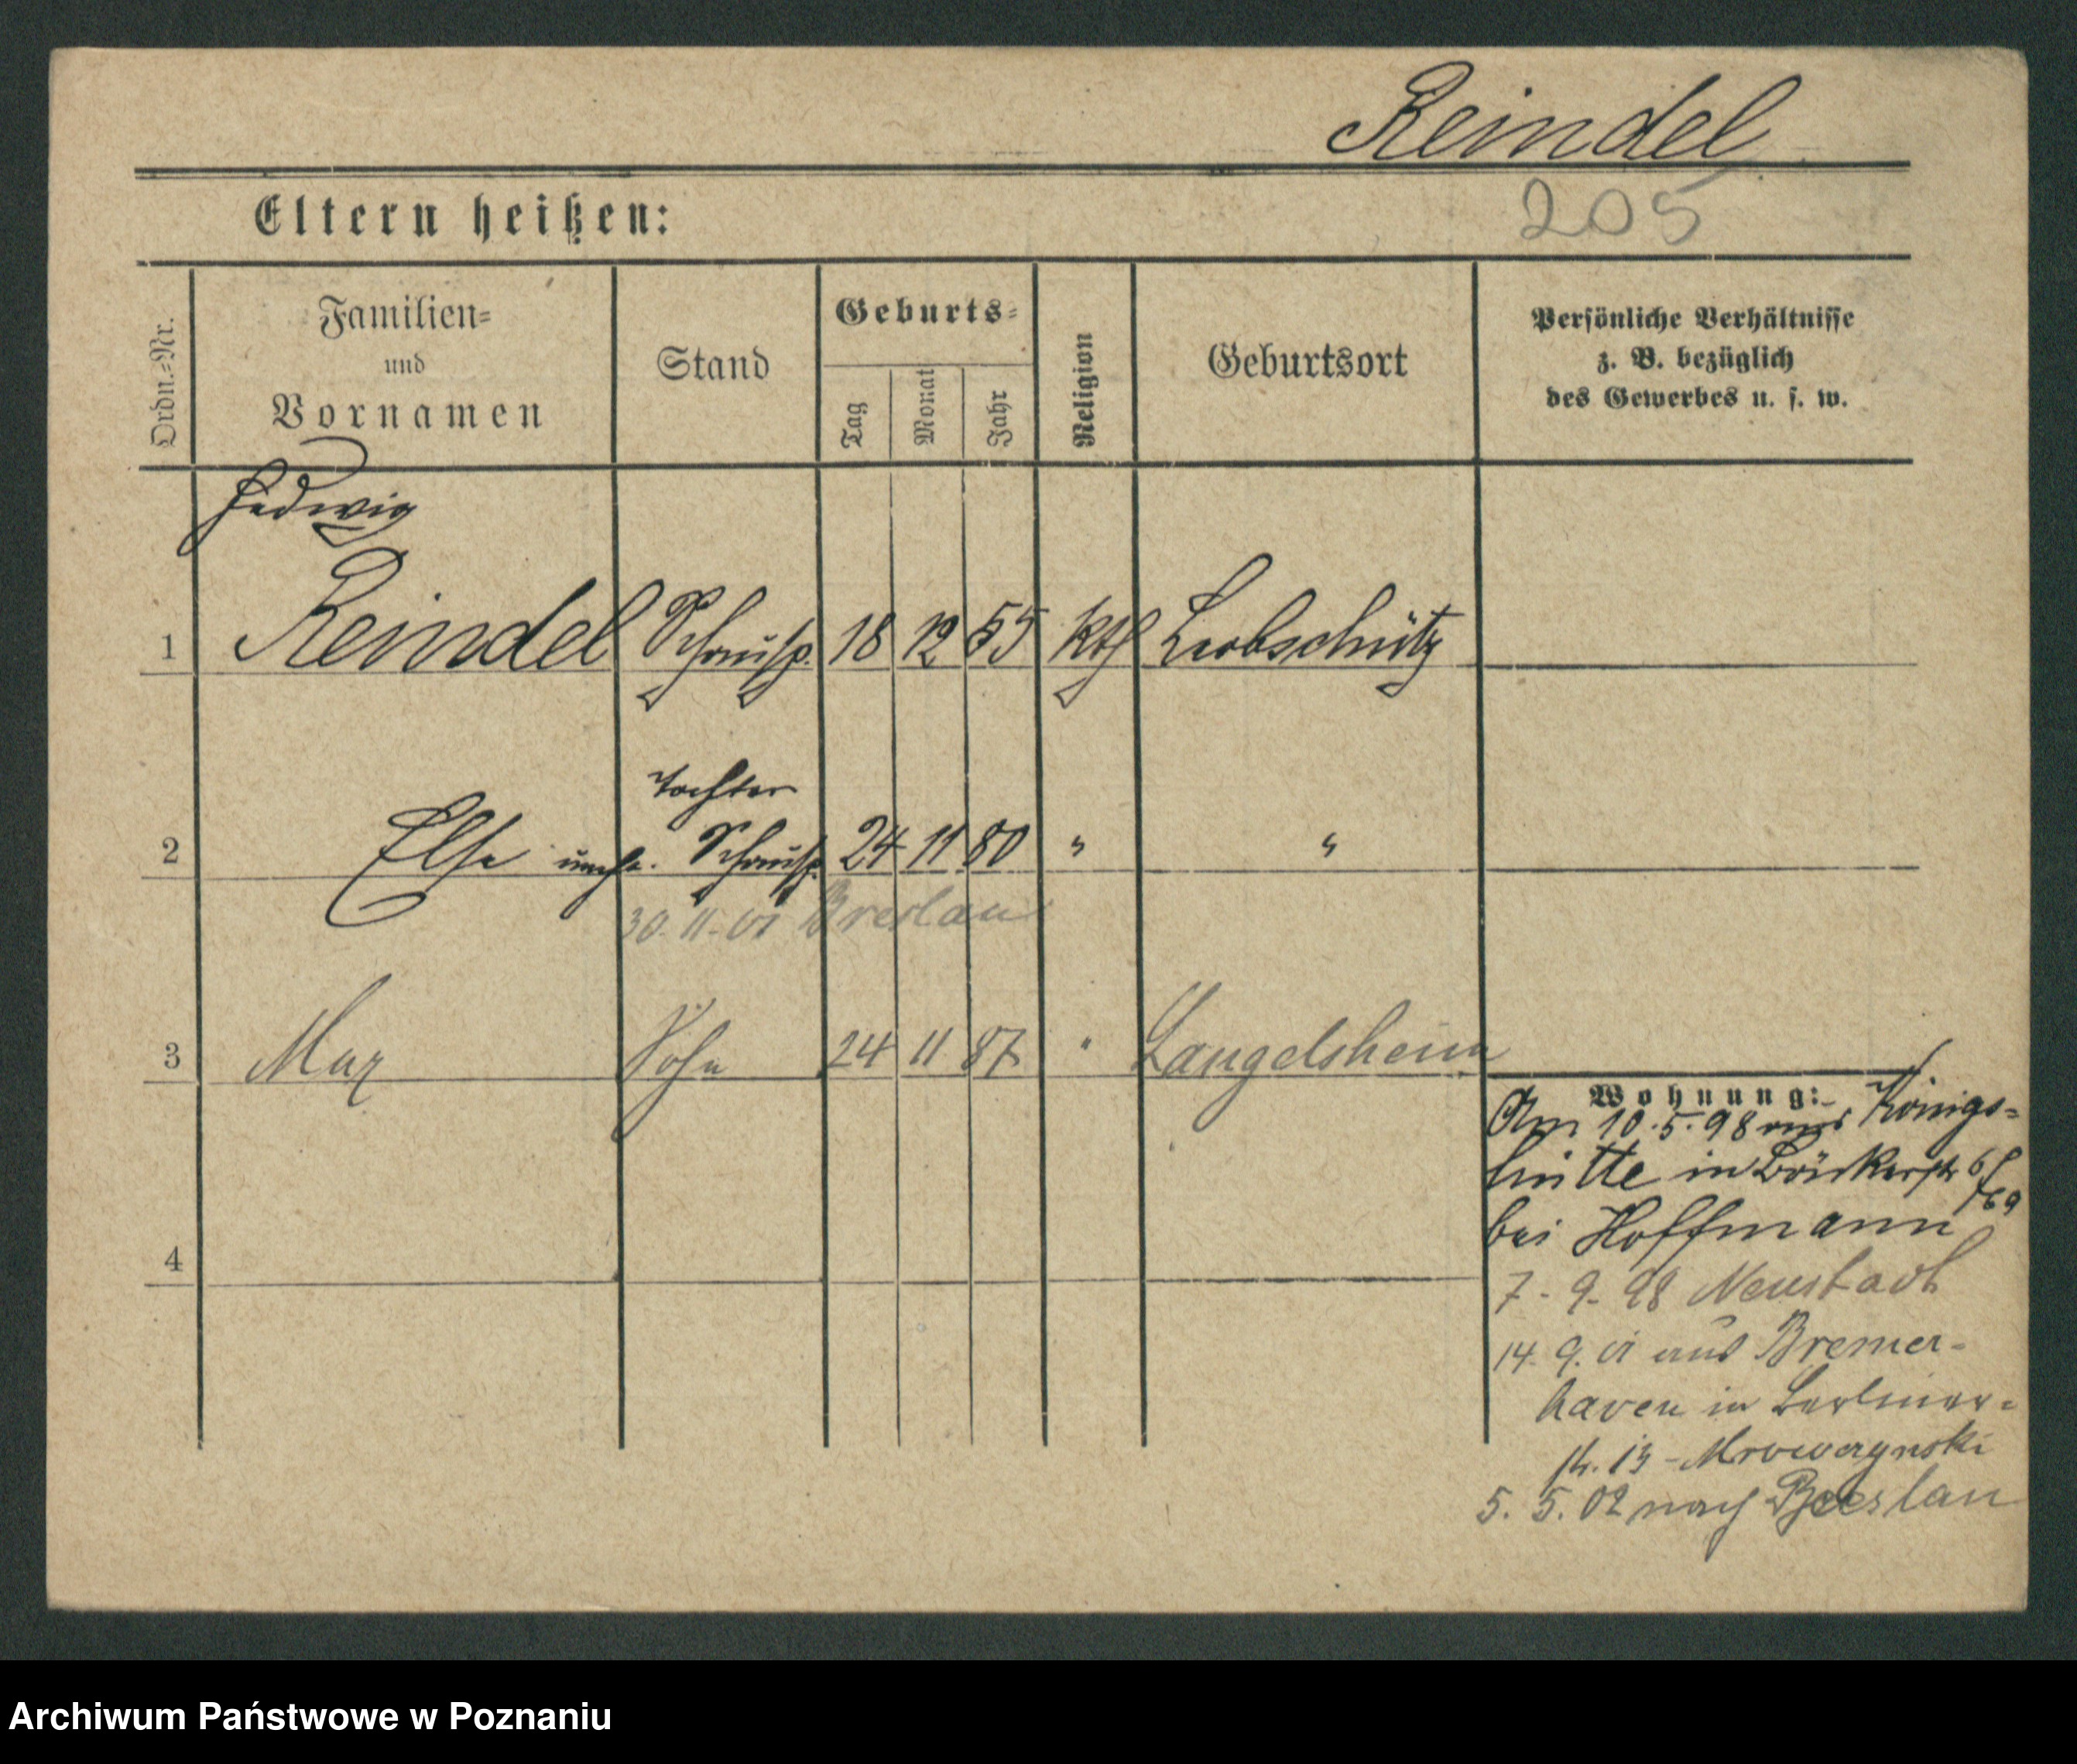 Reindel
Eltern heißen:
205
Ordn.=Nr.
Familien=
und
Vornamen
Stand
Geburts=
Tag
Monat
Jahr
Religion
Geburtsort
Persönliche Verhältnisse
z. B. bezüglich
des Gewerbes u. s. w.
Hedwig
1 Reindel Schausp. 18 12 55 kth Leobschütz
Tochter
2 Else unehe. Schausp. 24 11 80 " "
30. 11. 01 Breslau
3 Max Sohn 24 11 87 " Langelsheim
Wohnung:
Am 10.5.98 aus Königs=
hütte in
bei Hoffmann
4
7. 9. 98 Neustadt
14. 9. 01 aus Bremer-
haven in Berliner=
str. 13 -
5. 5. 02 nach Breslau
Archiwum Państwowe w Poznaniu